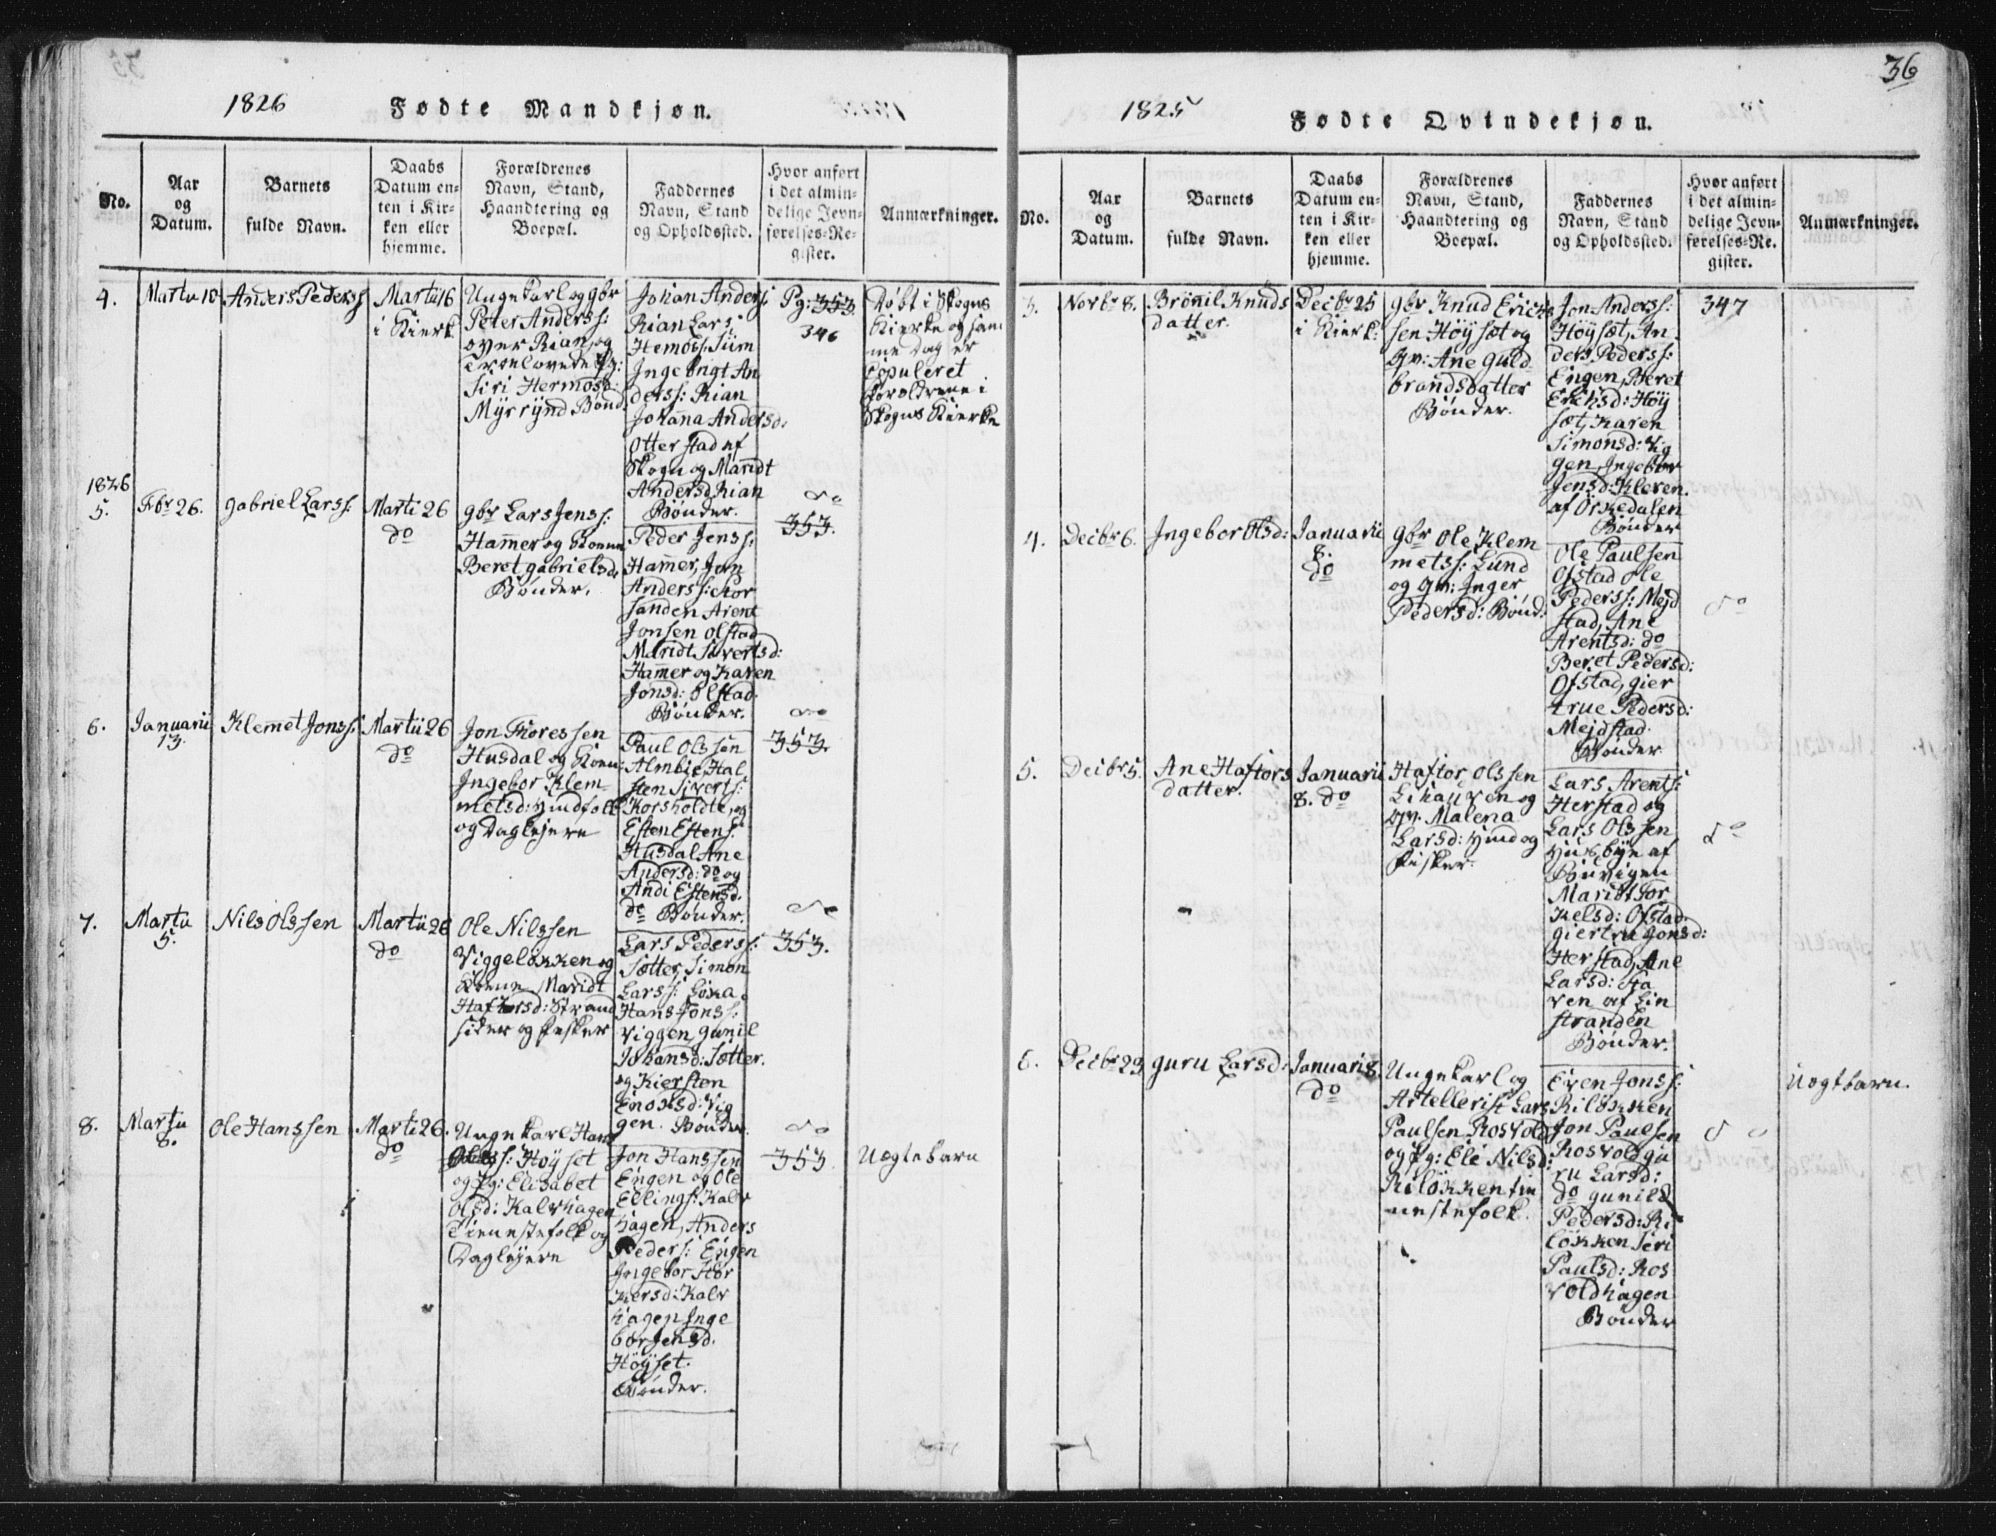 1826 Fødte Mandkjøn.
No.
Aar
og
Datum.
Barnets
fulde Navn.
Daabs
Datum en-
ten i Kir-
ken eller
hjemme.
Forældrenes
Navn, Stand,
Haandtering og
Boepæl.
Faddernes
Navn, Stand
og Opholdssted.
Hvor anført
i det almin-
delige Jevn-
førelses-Re-
gister.
Anmærkninger.
4.
Martii 10
Anders Pederss
Martii 16
i Kierk
Ungekarl og gbr
Peter Anderss:
over Rian, og
trolovede Pg:
Siri Hermosd:
Myrsynd Bønd
Johan Anderss
Rian Lars
Hemoss: Siim
Ingebrigt An
derss: Rian
Johanna Andersd:
Otterstad af
Skogn og Maridt
Andersd Rian
Bønder.
Pg: 353.
346
Døbt i Skogns
Kierke og sam
me Dag er
Copuleret
Foreldrene i
Skogns Kierke
1826
5.
Fbr 26.
Gabriel Larss:
Marti 26
do
gbr Lars Jenss:
Hamer og Kone
Beret Gabrielsd:
Bønder.
Peder Jenss:
Hamer, Jon
Anderss: Stor
sanden Arent
Jonsen Olstad
Maridt Sivertsd:
Hamer og Karen
Jonsd: Olstad.
Bønder.
do
353.
6.
Januarii
13.
Klemet Jonss:
Martii 26
do
Jon Thoressen
Husdal og Kone:
Ingebor Klem-
metsd: Huusfolk
og Daglejere
Paul Olssen
Almbie, Hal
sten Siverts:
Korsholdte, og
Esten Estens:
Husdal Ane
Andersd: do og
Andi Estensd.
do Bønder.
do
353.
7.
Martii
5.
Nils Olssen
Martii 26
do
Ole Nilssen
Viggeløkken og
Kone Maridt
Haftorsd: Strand
sider og Fisker
Lars Pederss:
Sætter, Simon
Larss: Løka
Hans Jonss:
Viggen, Gunil
Johansd: Sætter.
og Kiersten
Enoksd: Vig
gen. Bønder.
do
353.
8.
Martii
8.
Ole Hanssen
Marti 26.
do
Ungekarl Hans
Oless: Høyset
og Pg: Elisabet
Olsd: Kalvhagen
Tienestefolk og
Daglejere
Jon Hanssen
Engen og Ole
Ellings: Kalv
hagen, Anders
Peders: Engen
Ingebor Hal
kersd: Kalv
hagen Inge
bor Jensd.
Høyset.
Bønder.
do
353
Uegtebarn
36
1825 Fødte Qvindekjøn.
No.
Aar
og
Datum.
Barnets
fulde Navn.
Daabs
Datum en-
ten i Kir-
ken eller
hjemme.
Forældrenes
Navn, Stand,
Haandtering og
Boepæl.
Faddernes
Navn, Stand
og Opholdssted.
Hvor anført
i det almin-
delige Jevn-
førelses-Re-
gister.
Anmærkninger.
3.
Novbr 8.
Brønil Knuds
datter.
Decbr 25
i Kierk:
gbr Knud Erick
sen Høysæt og
Qv: Ane Guld-
brandsdatter
Bønder.
Jon Anderss:
Høysæt, An
ders Pederss:
Engen, Beret
Erichsd: Høy
sæt, Karen
Simonsd: Vig
gen, Ingebor
Jensd: Kleven.
af Orkedalen
Bønder
347
4.
Decbr 6.
Ingebor Olsd:
Januarii
8.
do
gbr Ole Klem
metss: Lund
og Qv: Inger
Pedersd: Bønd:
Ole Paulsen
Ofstad Ole
Pederss: Mejd
stad, Ane
Arentsd: do
Beret Pedersd:
Ofstad, Gier
true Pedersd:
Mejdstad.
Bønder
do
5.
Decbr 5.
Ane Haftors
datter.
Januarii
8. do
Haftor Olssen
Lihauven og
Qv: Malena
Larsd: Huusm og
Fisker.
Lars Arents:
Herstad og
Lars Olssen
Husbye af
Buvigen
Maridt Tor
kelsd: Ofstad.
Giertru Jonsd:
Herstad, Ane
Larsd: Sta
ven af Lin
stranden
Bønder.
do
6.
Decbr 29
Guru Larsd:
Januari 8.
do
Ungekarl og
Artellerist Lars
Paulsen Rosvold
og Pg: Ele Nilsd:
Riløkken tie
nestefolk.
Even Jonss:
Riløkken
Jon Paulsen
Rosvold Gu
ru Larsd:
do Gunild
Pedersd: Ri
løkken Seri
Paulsd: Ros
voldhagen
Bønder
do
Uegtbarn.